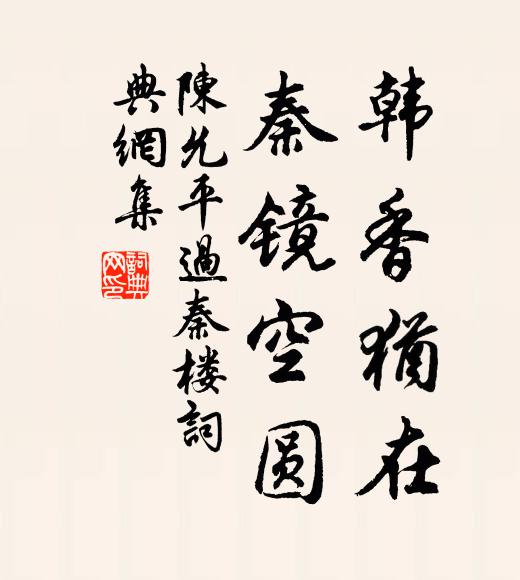 韩香猶在
秦镜空圆
陳允平過秦楼詞
典網集
詞典
网印